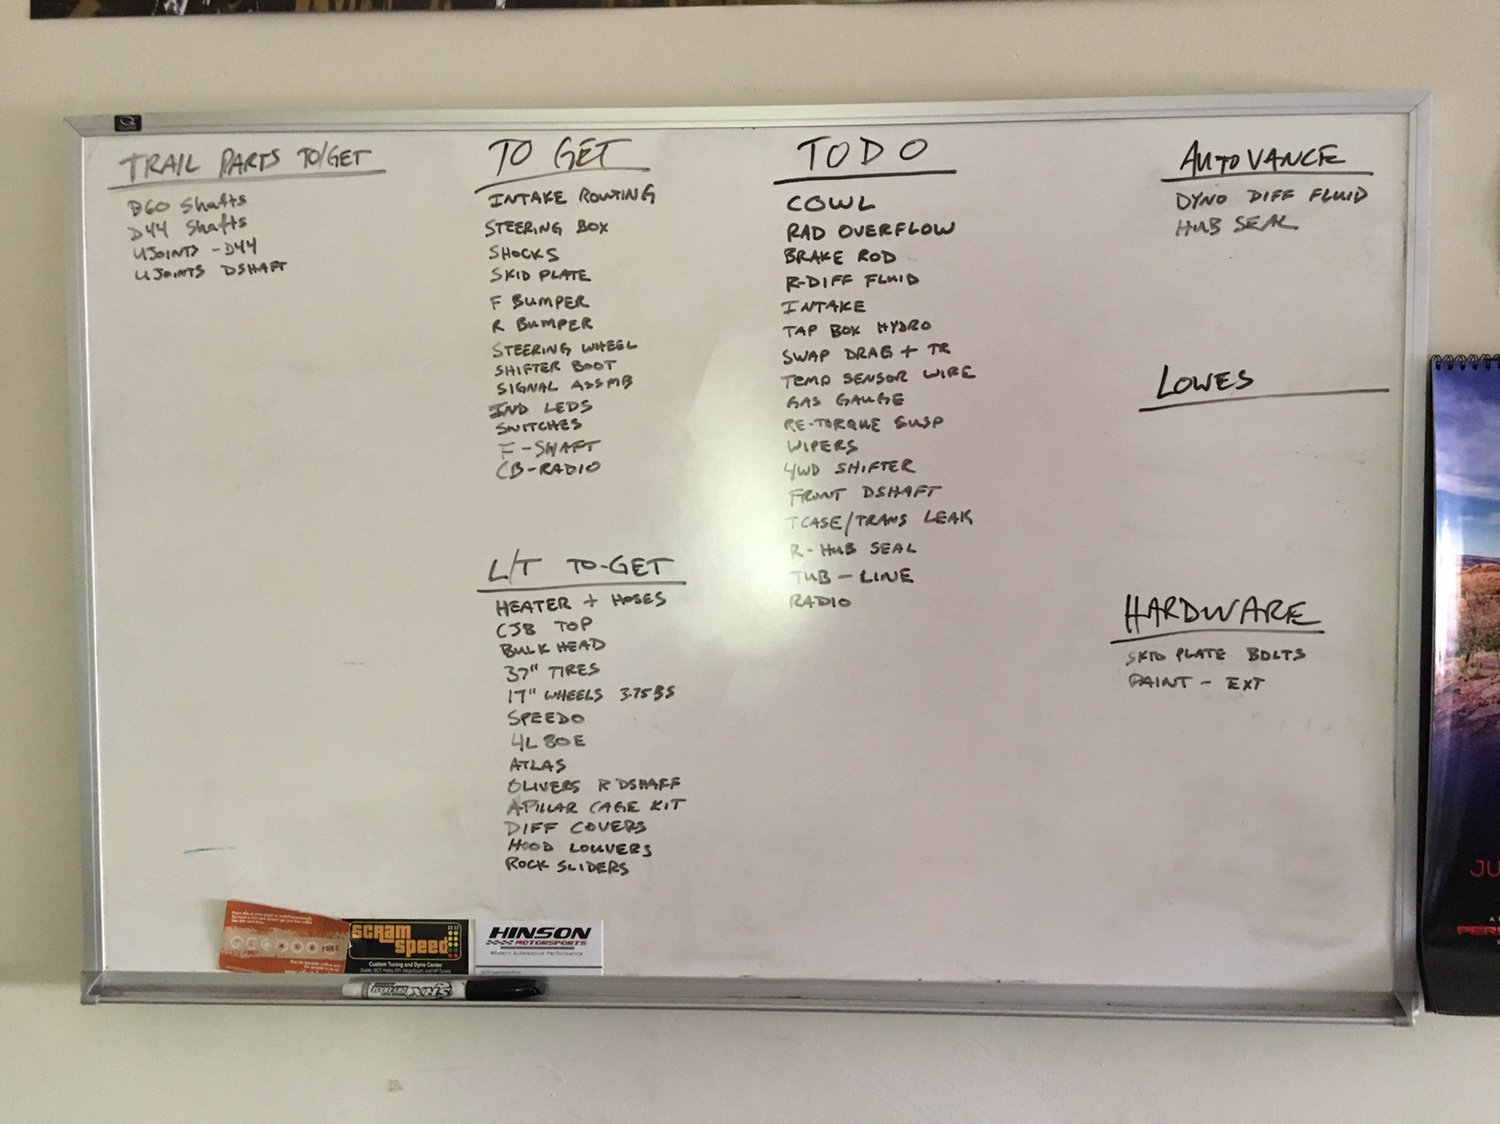 TRAIL PARTS TO/GET
D60 Shafts
D44 Shafts
UJOINTS - D44
UJOINTS DSHAFT
TO GET
INTAKE ROUTING
STEERING BOX
SHOCKS
SKID PLATE
F BUMPER
R BUMPER
STEERING WHEEL
SHIFTER BOOT
SIGNAL ASSMB
IND LEDS
SWITCHES
F-SHAFT
CB-RADIO
L/T TO-GET
HEATER + HOSES
CJ8 TOP
BULK HEAD
37" TIRES
17" WHEELS 3.75 BS
SPEEDO
4L80E
ATLAS
OLIVERS R DSHAFF
A PILLAR CAGE KIT
DIFF COVERS
HOOD LOUVERS
ROCK SLIDERS
TODO
COWL
RAD OVERFLOW
BRAKE ROD
R-DIFF FLUID
INTAKE
TAP BOX HYDRO
SWAP DRAG + TR
TEMP SENSOR WIRE
GAS GAUGE
RE-TORQUE SUSP
WIPERS
4WD SHIFTER
FRONT DSHAFT
TCASE/TRANS LEAK
R-HUB SEAL
TUB-LINE
RADIO
AUTOVANCE
DYNO DIFF FLUID
HUB SEAL
LOWES
HARDWARE
SKID PLATE BOLTS
PAINT - EXT
4 5 6 FREE
scram
speed
Custom Tuning and Dyno Center
HINSON
MOTORSPORTS
Modern Automotive Performance
JU